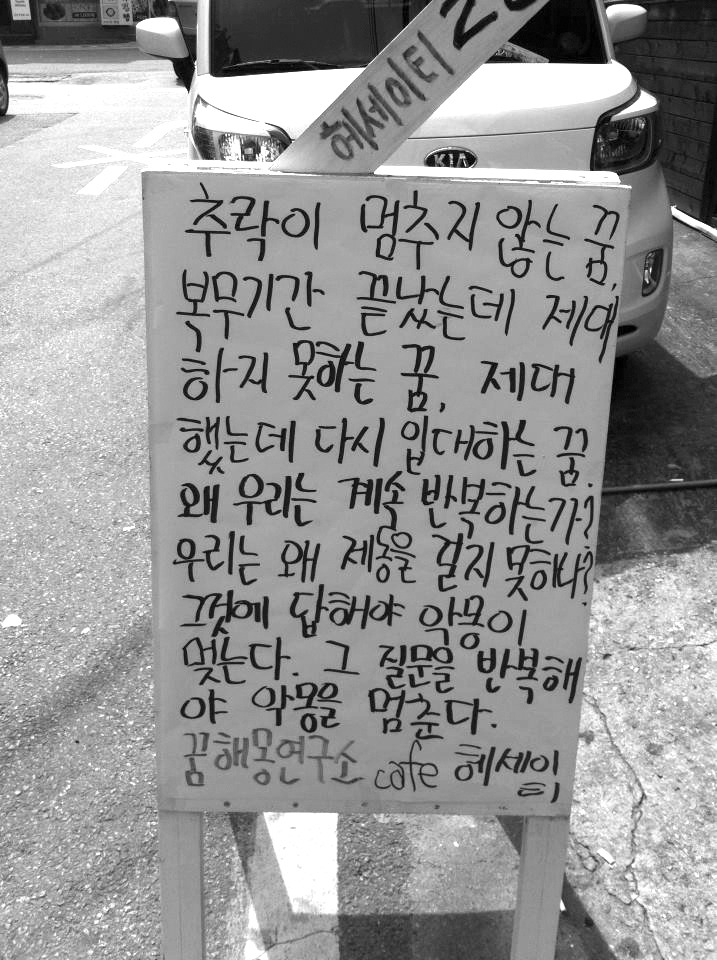 헤세이티
KIA
추락이 멈추지 않는 꿈,
복무기간 끝났는데 제대
하지 못하는 꿈, 제대
했는데 다시 입대하는 꿈.
왜 우리는 계속 반복하는가?
우리는 왜 제동을 걸지 못하나?
그것에 답해야 악몽이
멎는다. 그 질문을 반복해
야 악몽을 멈춘다.
꿈해몽연구소 cafe 헤세이티